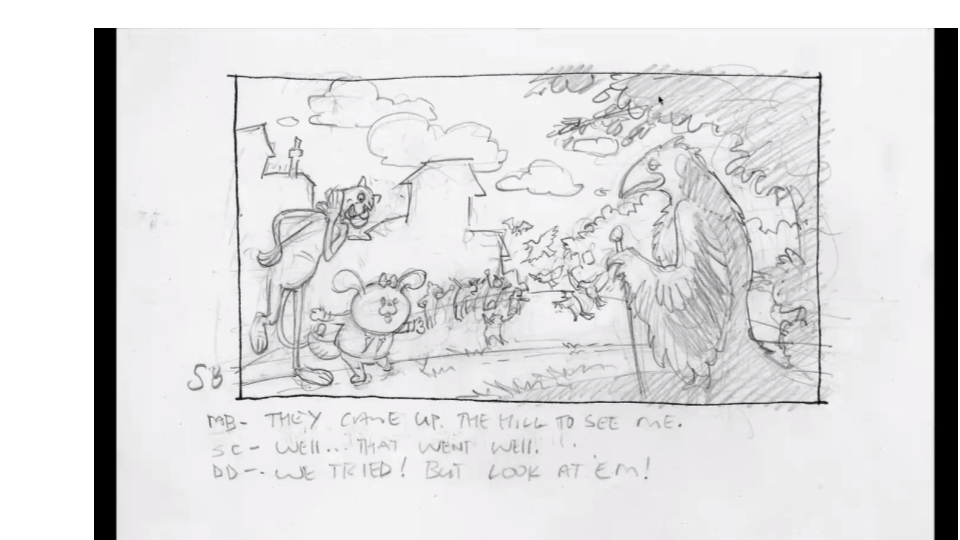 58
MB- THEY CAME UP THE HILL TO SEE ME.
SC- WELL... THAT WENT WELL.
DD-. WE TRIED! BUT LOOK AT 'EM!